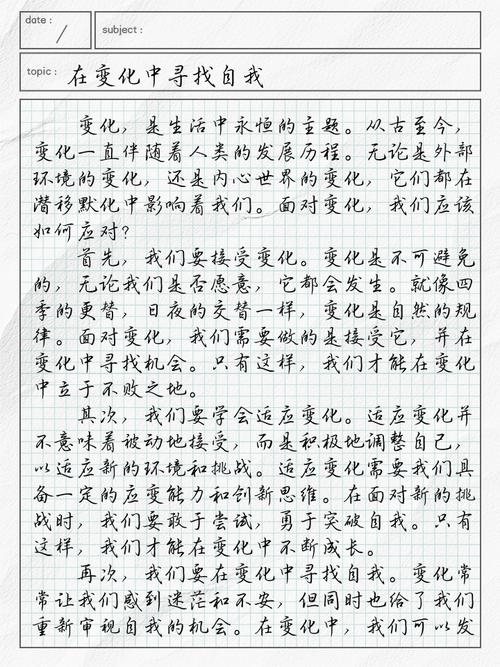 date :
/
subject :
topic : 在变化中寻找自我
变化，是生活中永恒的主题。从古至今，
变化一直伴随着人类的发展历程。无论是外部
环境的变化，还是内心世界的变化，它们都在
潜移默化中影响着我们。面对变化，我们应该
如何应对？
首先，我们要接受变化。变化是不可避免
的，无论我们是否愿意，它都会发生。就像四
季的更替，日夜的交替一样，变化是自然的规
律。面对变化，我们需要做的是接受它，并在
变化中寻找机会。只有这样，我们才能在变化
中立于不败之地。
其次，我们要学会适应变化。适应变化并
不意味着被动地接受，而是积极地调整自己，
以适应新的环境和挑战。适应变化需要我们具
备一定的应变能力和创新思维。在面对新的挑
战时，我们要敢于尝试，勇于突破自我。只有
这样，我们才能在变化中不断成长。
再次，我们要在变化中寻找自我。变化常
常让我们感到迷茫和不安，但同时也给了我们
重新审视自我的机会。在变化中，我们可以发